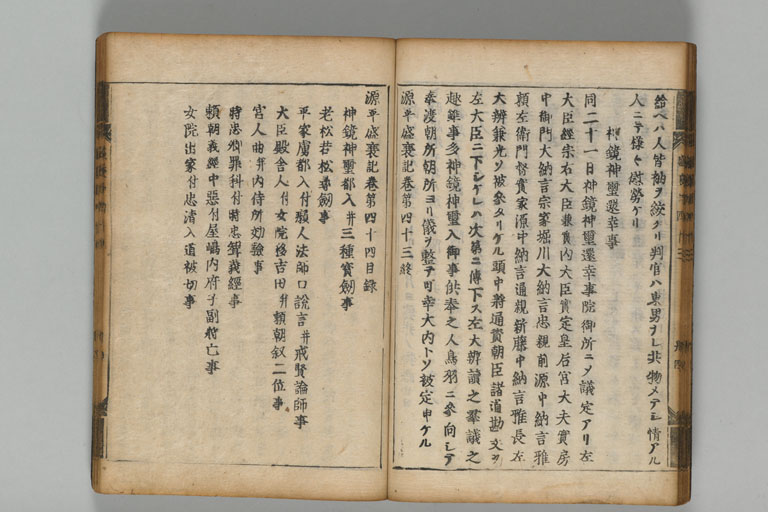 給ヘハ人皆袖ヲ絞ケリ判官ハ東男ナレ共物メテシ情アル
人ニテ様々慰勞ケリ
神鏡神璽還幸事
同二十一日神鏡神璽還幸事院御所ニメ議定アリ左
大臣經宗右大臣兼實内大臣實定皇后宮大夫實房
中御門大納言宗家堀川大納言忠親前源中納言雅
頼左衛門督實家源中納言通親新藤中納言雅長左
大辨兼光ソ被參タリケル頭中將通資朝臣諸道勘文ヲ
左大臣ニ下シケレハ次第ニ傳下ス左大辨讀之羣議之
趣雖事多神鏡神璽入御事供奉之人鳥羽ニ參向シテ
奉渡朝所朝所ヨリ儀ヲ整テ可幸大内トソ被定申ケル
源平盛衰記卷第四十三終
源平盛衰記卷第四十四目録
神鏡神璽都入并三種寳劔事
老松若松尋劔事
平家虜都入付癩人法師口説言并戒賢論師事
大臣殿舎人付女院移吉田并頼朝叙二位事
宮人曲并内侍所効驗事
時忠卿罪科付時忠聟義經事
頼朝義經中惡付屋嶋内府子副將亡事
女院出家付忠清入道被切事